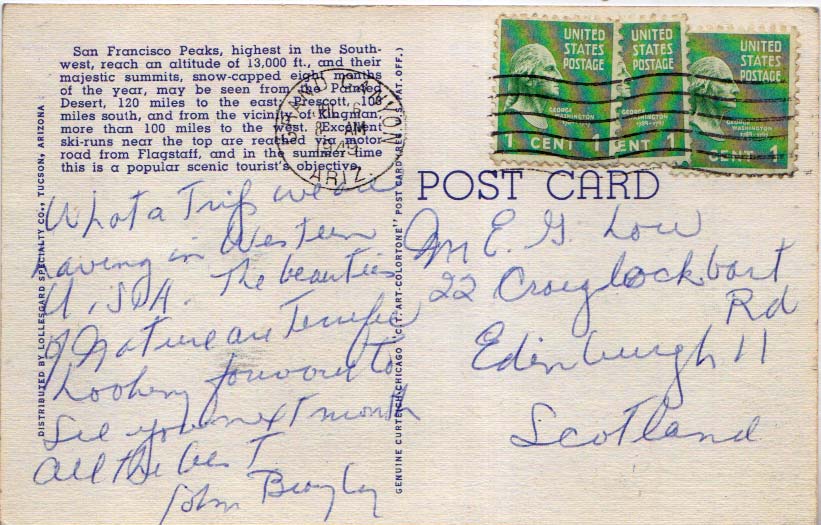 San Francisco Peaks, highest in the South-
west, reach an altitude of 13,000 ft., and their
majestic summits, snow-capped eight months
of the year, may be seen from the Painted
Desert, 120 miles to the east; Prescott, 108
miles south, and from the vicinity of Kingman,
more than 100 miles to the west. Excellent
ski-runs near the top are reached via motor
road from Flagstaff, and in the summer time
this is a popular scenic tourist's objective.
DISTRIBUTED BY LOLLESGARD SPECIALTY CO., TUCSON, ARIZONA
GENUINE CURTEICH-CHICAGO "C.T. ART-COLORTONE" POST CARD (REG. U.S. PAT. OFF.)
GRAND CANYON
6
8 AM
1949
ARIZ.
UNITED
STATES
POSTAGE
GEORGE
WASHINGTON
1 CENT 1
UNITED
STATES
POSTAGE
GEORGE
WASHINGTON
ENT 1
UNITED
STATES
POSTAGE
GEORGE
WASHINGTON
CENT 1
POST CARD
What a Trip we are
having in Western
U.S.A. The beauties
of Nature are Terrific
Looking forward to
See you next month
All the best
John
E. G. Low
22 Craiglockhart
Rd
Edinburgh 11
Scotland